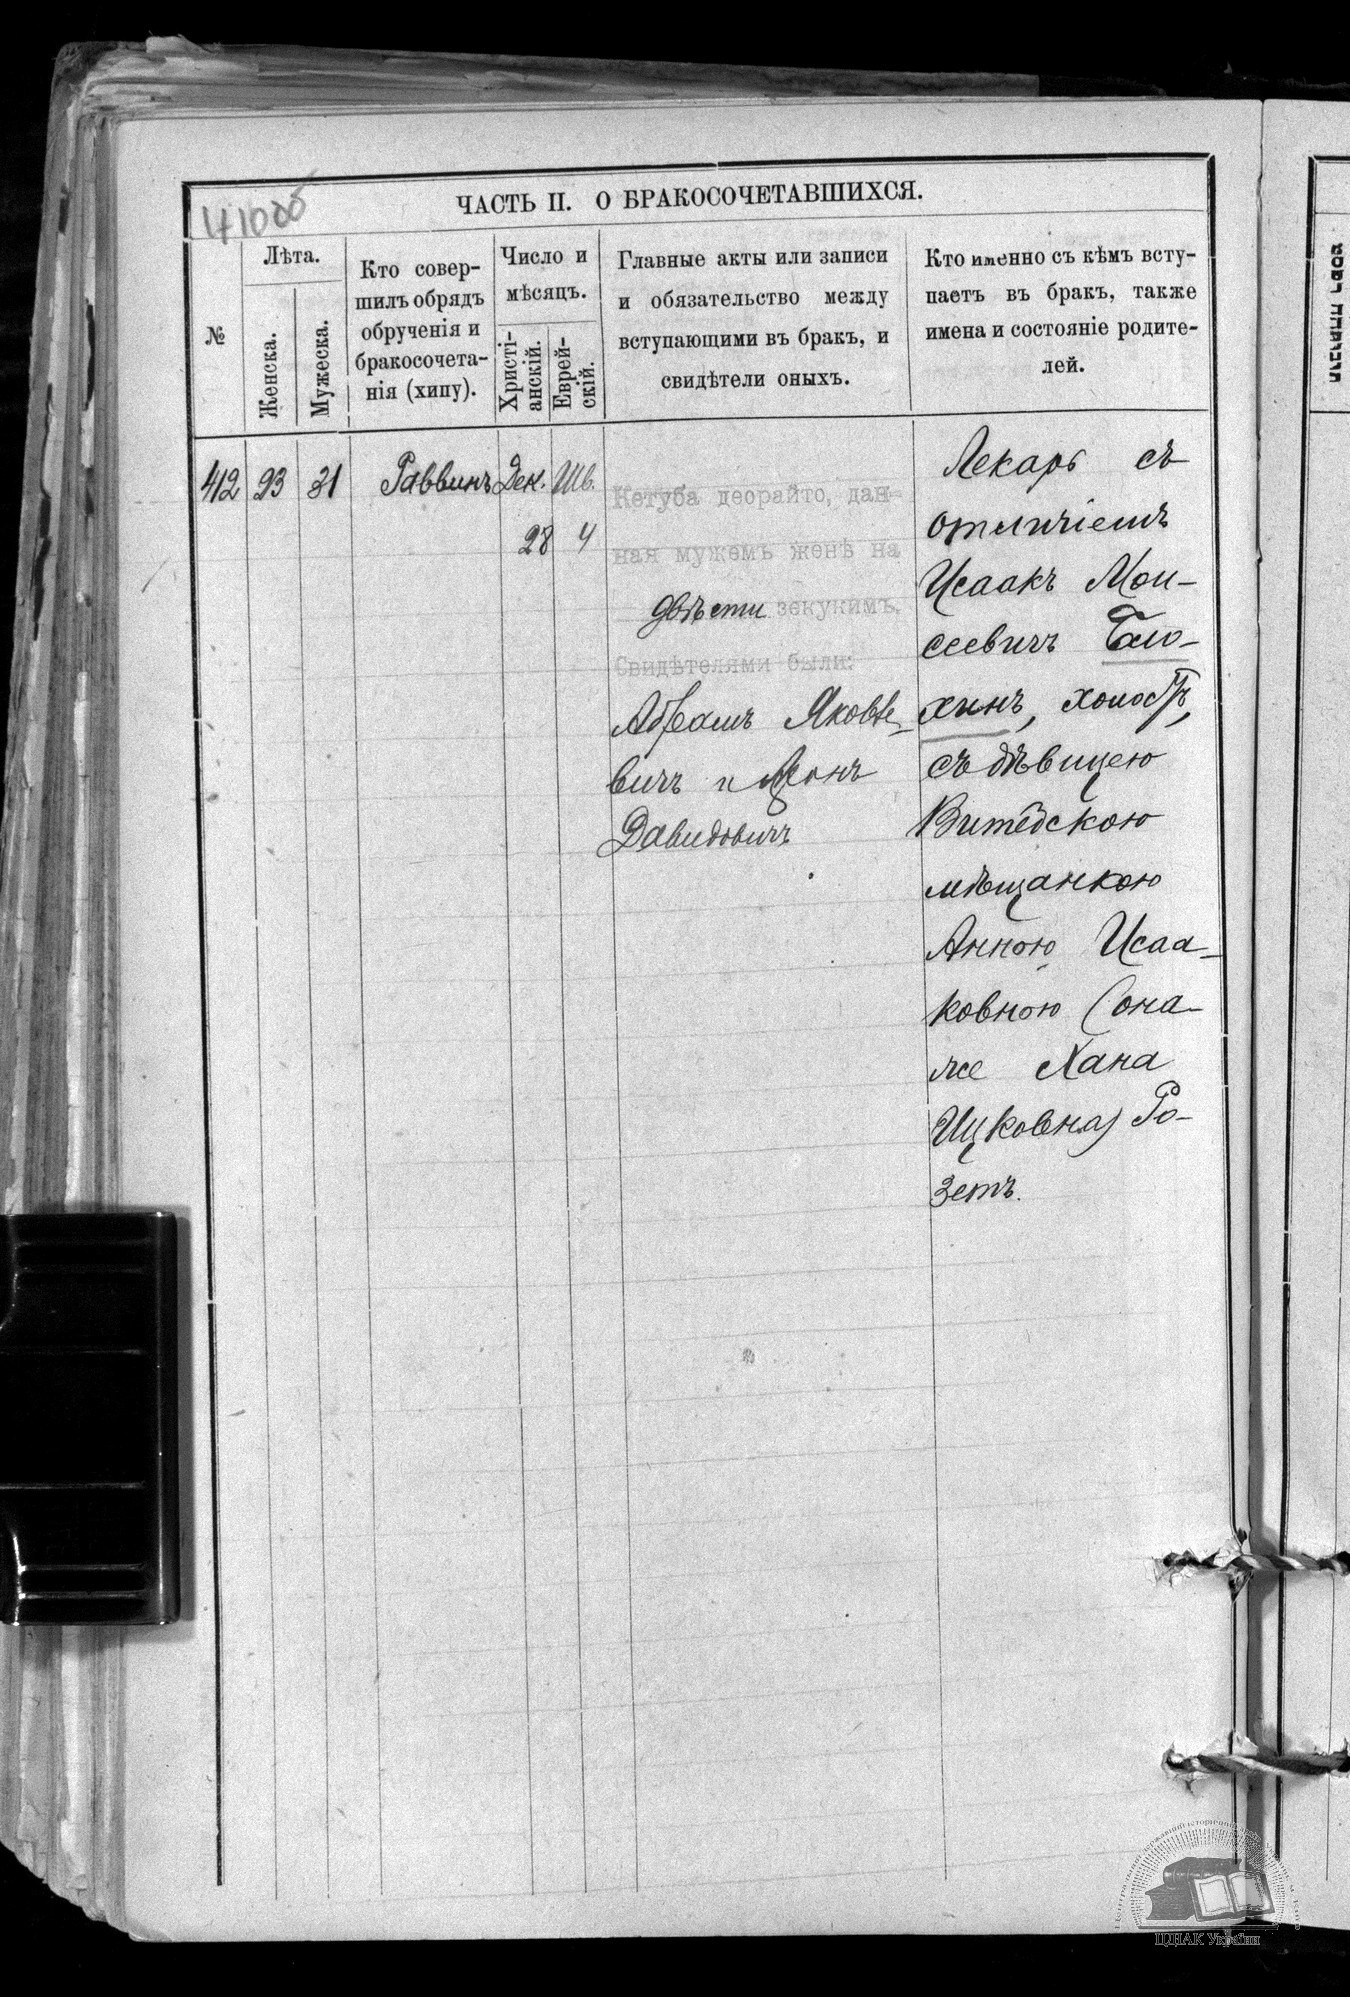 ЧАСТЬ II. О БРАКОСОЧЕТАВШИХСЯ.
№
Лѣта.
Женска.
Мужеска.
Кто совер-
шилъ обрядъ
обрученія и
бракосочета-
нія (хипу).
Число и
мѣсяцъ.
Христі-
анскій.
Еврей-
скій.
Главные акты или записи
и обязательство между
вступающими въ бракъ, и
свидѣтели оныхъ.
Кто именно съ кѣмъ всту-
паетъ въ бракъ, также
имена и состояніе родите-
лей.
412
23
31
Раввинъ
Дек.
28
Шв.
4
Кетуба деорайто, дан=
ная мужемъ женѣ на
двѣсти зекукимъ.
Свидѣтелями были:
Абрамъ Яковле-
вичъ и
Давидовичъ
Лекарь съ
отличіемъ
Исаакъ Мои-
сеевичъ Бло-
хинъ, холостъ,
съ дѣвицею
Витебскою
мѣщанкою
Анною Исаа-
ковною (она-
же Хана
Ицковна) Ро-
зетъ.
ЦДІАК України